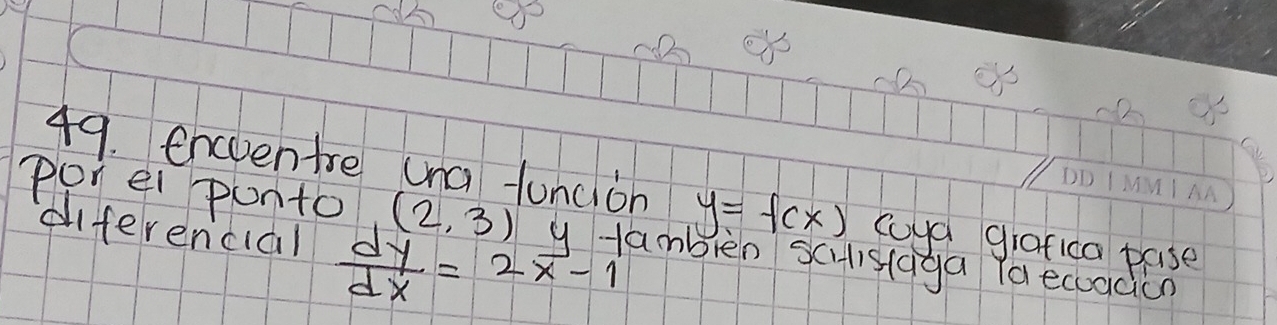 DD / MM / AA
49. Encuentre una función y = f(x) cuya grafica pase
por el punto (2,3) y también satisfaga la ecuación
diferencial dy/dx = 2x - 1